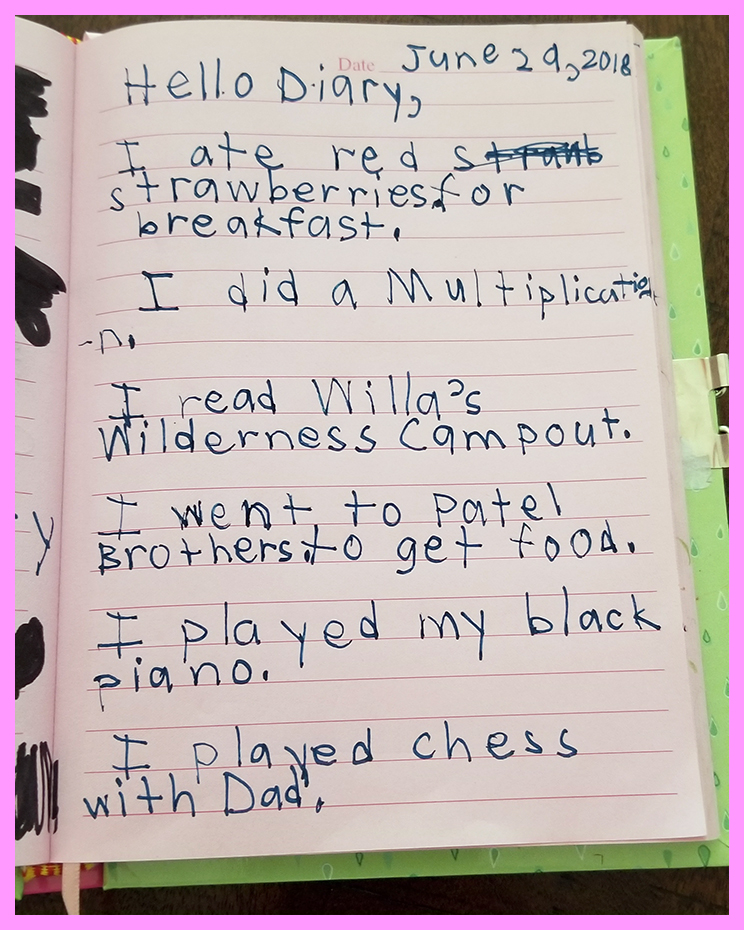 Date June 29, 2018
Hello Diary,
I ate red
strawberries.for
breakfast.
I did a Multiplicatio
-n.
I read Willa's
Wilderness Campout.
I went to Patel
Brothers.to get food.
I played my black
piano.
I played chess
with Dad.
y